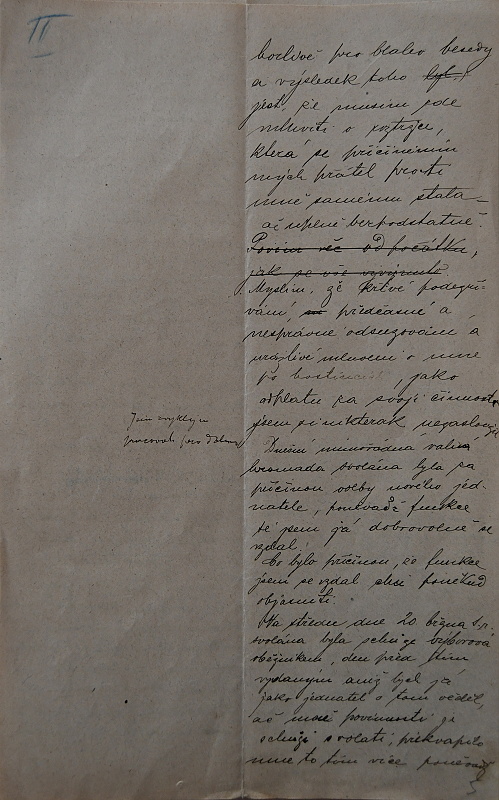 II
horlivě pro blaho besedy
a výsledek toho byl
jest, že musím zde
mluviti o roztržce,
která se přičiněním
mých přátel proti
mně samému stala
ač úplně bezpodstatně.
Povím věc od počátku,
jak se vše vyvinulo
Myslím, že křivé podezří-
vání, předčasné a
nesprávné odsuzování a
urážlivé mluvení o mne
po hostincích, jako
odplatu za svoji činnost
jsem si nikterak nezasloužil
Jsem zvyklým
pracovati pro
Dnešní mimořádná valná
hromada svolána byla za
příčinou volby nového jed-
natele, poněvadž funkce
té jsem já dobrovolně se
vzdal.
Co bylo příčinou, že funkce
jsem se vzdal chci poněkud
objasniti.
Na středu dne 20 března t.r.
svolána byla schůze výborová
oběžníkem, den před tím
vydaným aniž bych já
jako jednatel o tom věděl,
ač mojí povinností je
schůzi svolati, překvapilo
mne to tím více poněvadž